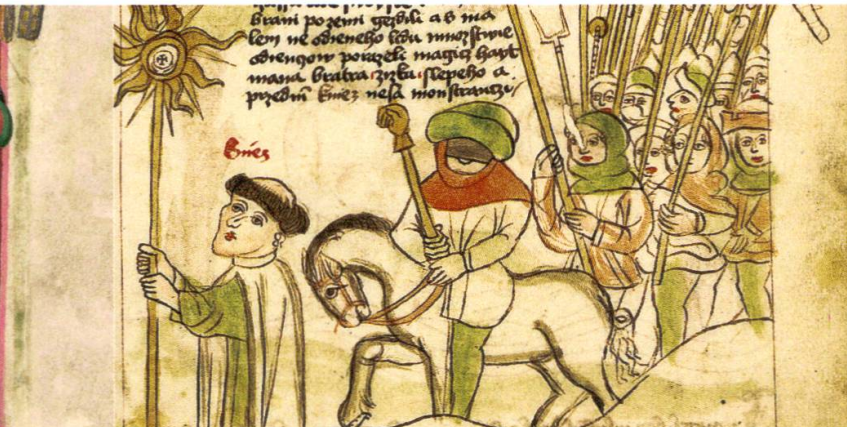 brani po zemi gezdili a s ma
lem ne odieneho lidu mnozstwie
odiencow porazeli magicz hayt
mana bratra zizku slepeho a
przedním kniez nesa monstranczi
kniez